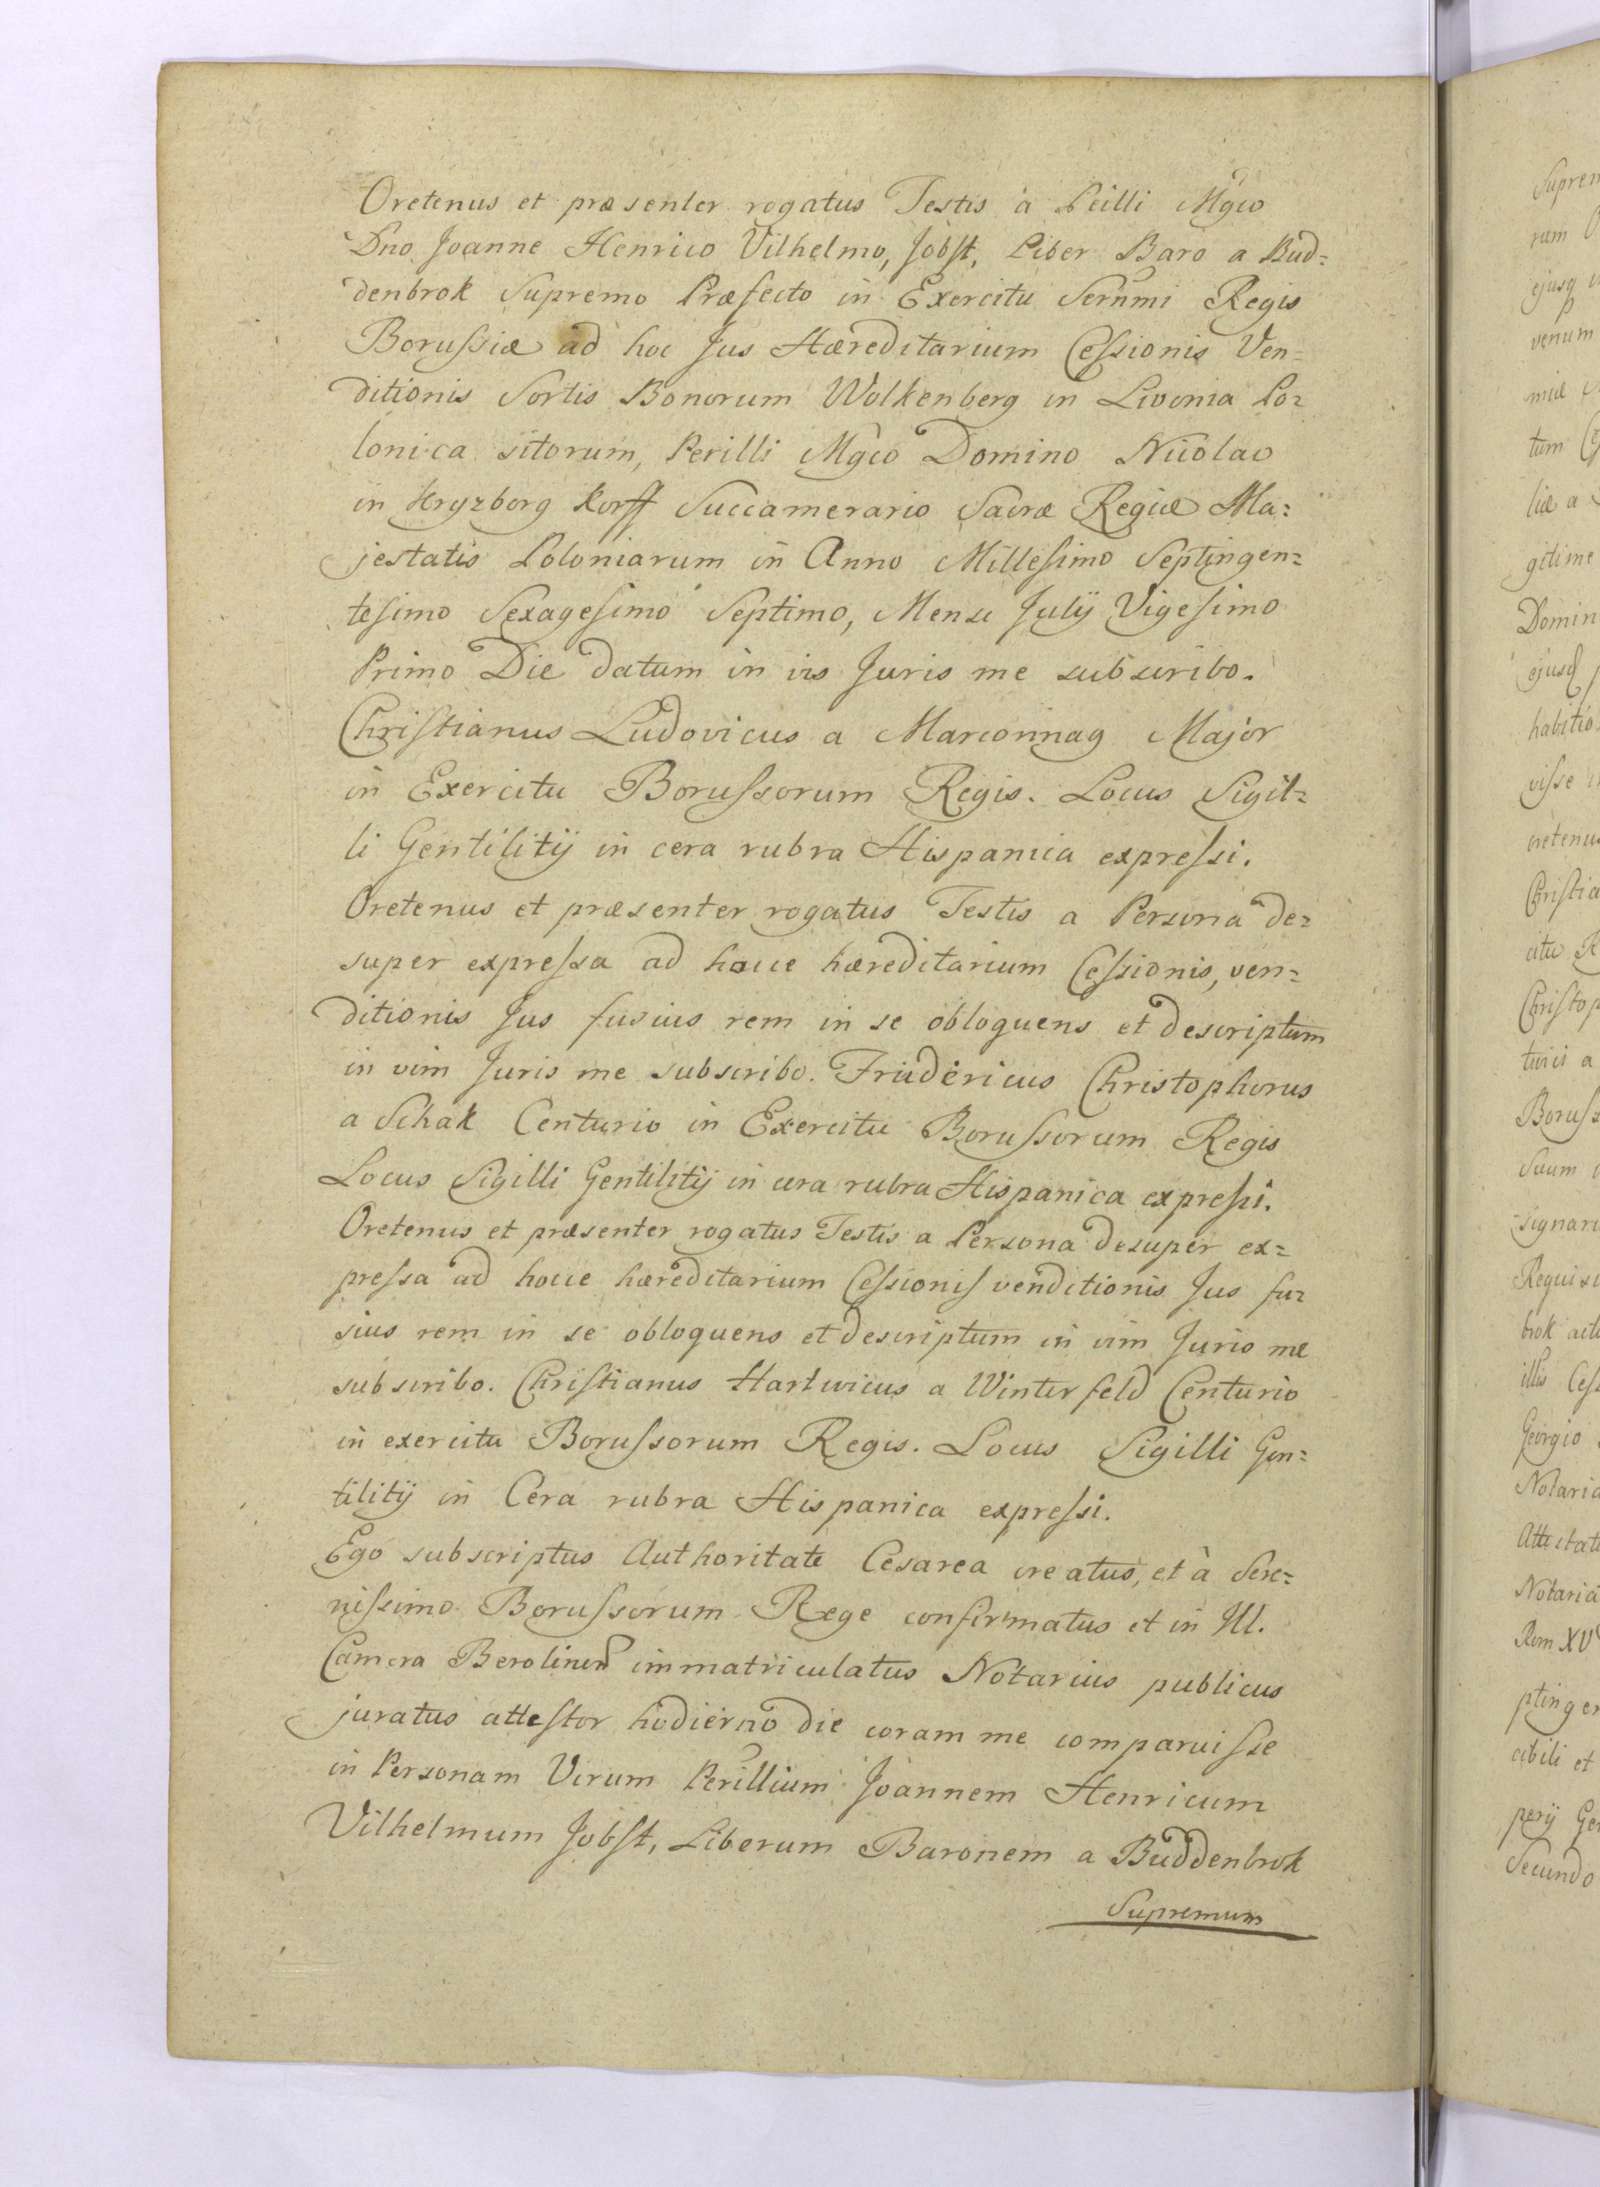 Oretenus et præsenter rogatus Testis à Peilli Mgco
Dno Joanne Henrico Vilhelmo, Jobst, Liber Baro a Bud=
denbrok Supremo Præfecto in Exercitu Sernmi Regis
Borussiæ ad hoc Jus Hæreditarium Cessionis Ven=
ditionis Sortis Bonorum Wolkenberg in Livonia Po=
lonica sitorum, Perilli Mgco Domino Nicolao
in Kryzborg Korff Succamerario Sacræ Regiæ Ma=
jestatis Poloniarum in Anno Millesimo Septingen=
tesimo Sexagesimo Septimo, Mense Julij Vigesimo
Primo Die datum in vis Juris me subscribo.
Christianus Ludovicus a Marconnay Major
in Exercitu Borussorum Regis. Locus Sigil=
li Gentilitij in cera rubra Hispanica expressi.
Oretenus et præsenter rogatus Testis a Persona de=
super expressa ad hocce hæreditarium Cessionis, ven=
ditionis Jus fusius rem in se obloquens et descriptum
in vim Juris me subscribo. Fridericus Christophorus
a Schak Centurio in Exercitu Borussorum Regis
Locus Sigilli Gentilitij in cera rubra Hispanica expressi.
Oretenus et præsenter rogatus Testis a Persona desuper ex=
pressa ad hocce hæreditarium Cessionis venditionis Jus fu=
sius rem in se obloquens et descriptum in vim Juris me
subscribo. Christianus Hartwicus a Winterfeld Centurio
in exercitu Borussorum Regis. Locus Sigilli Gen=
tilitij in Cera rubra Hispanica expressi.
Ego subscriptus Authoritate Cesarea creatus, et à Sere=
nissimo Borussorum Rege confirmatus et in Ill.
Camera Berolinen immatriculatus Notarius publicus
juratus attestor hodierno die coram me comparuisse
in Personam Virum Perillium Joannem Henricum
Vilhelmum Jobst, Liberum Baronem a Buddenbrok
Supremum